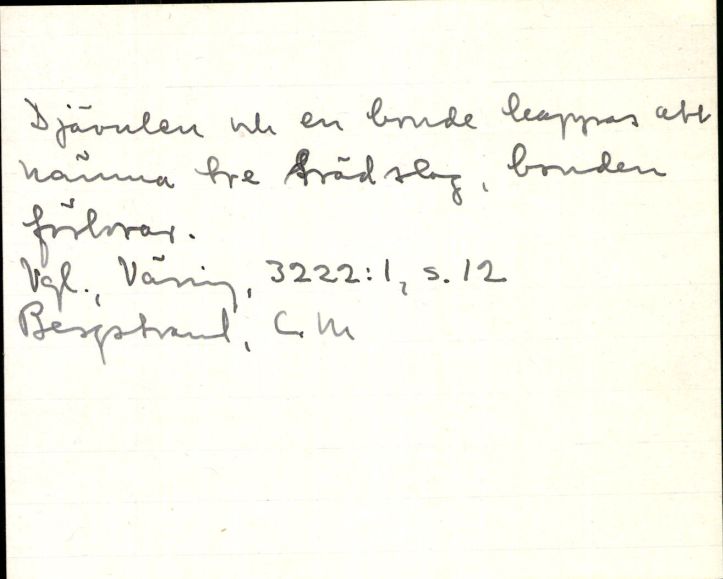 Djävulen och en bonde kappas att
nämna tre trädslag, bonden
förlorar.
Vgl., Väring, 3222:1, s. 12
Bergstrand, C. M